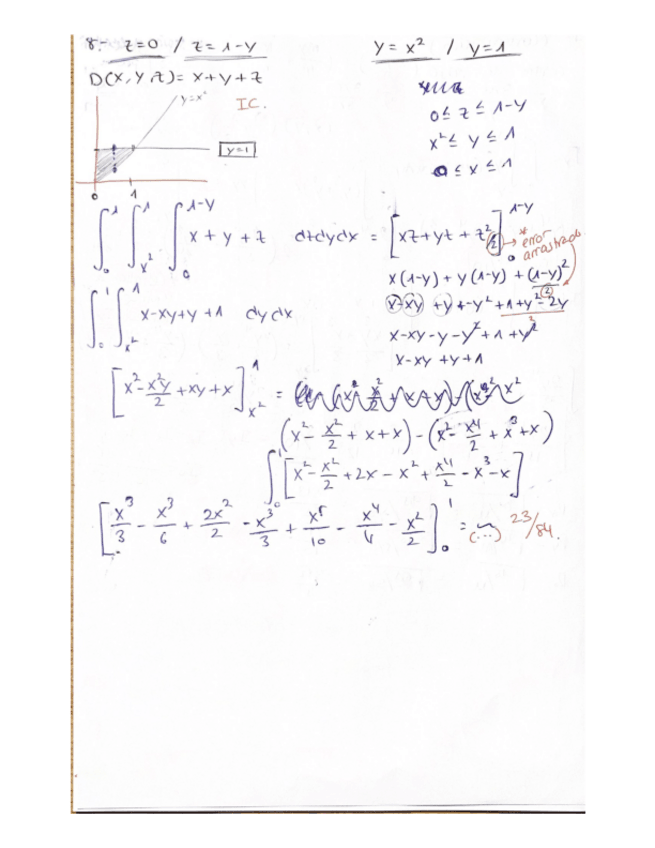 8.- z=0 / z=1-y    y=x² / y=1
D(x,y,z)= x+y+z
y=x²    I.C.    0≤z≤1-y
y=1    x²≤y≤1
0≤x≤1
0    1
∫₀¹ ∫_{x²}^{1} ∫₀^{1-y} x+y+z dzdydx = [xz+yz+z²/2]₀^{1-y} → * error arrastrado
x(1-y)+y(1-y)+(1-y)²/2
x-xy+y+-y²+1+y²-2y
∫₀¹ ∫_{x²}^{1} x-xy+y+1 dydx    x-xy-y-y²+1+y²
x-xy+y+1
[x²-x²y/2+xy+x]_{x²}^{1} =
(x²-x²/2+x+x)-(x²-x⁴/2+x³+x)
∫₀¹[x²-x²/2+2x-x²+x⁴/2-x³-x]
[x³/3-x³/6+2x²/2-x³/3+x⁵/10-x⁴/4-x²/2]₀¹ = (...) 23/84.